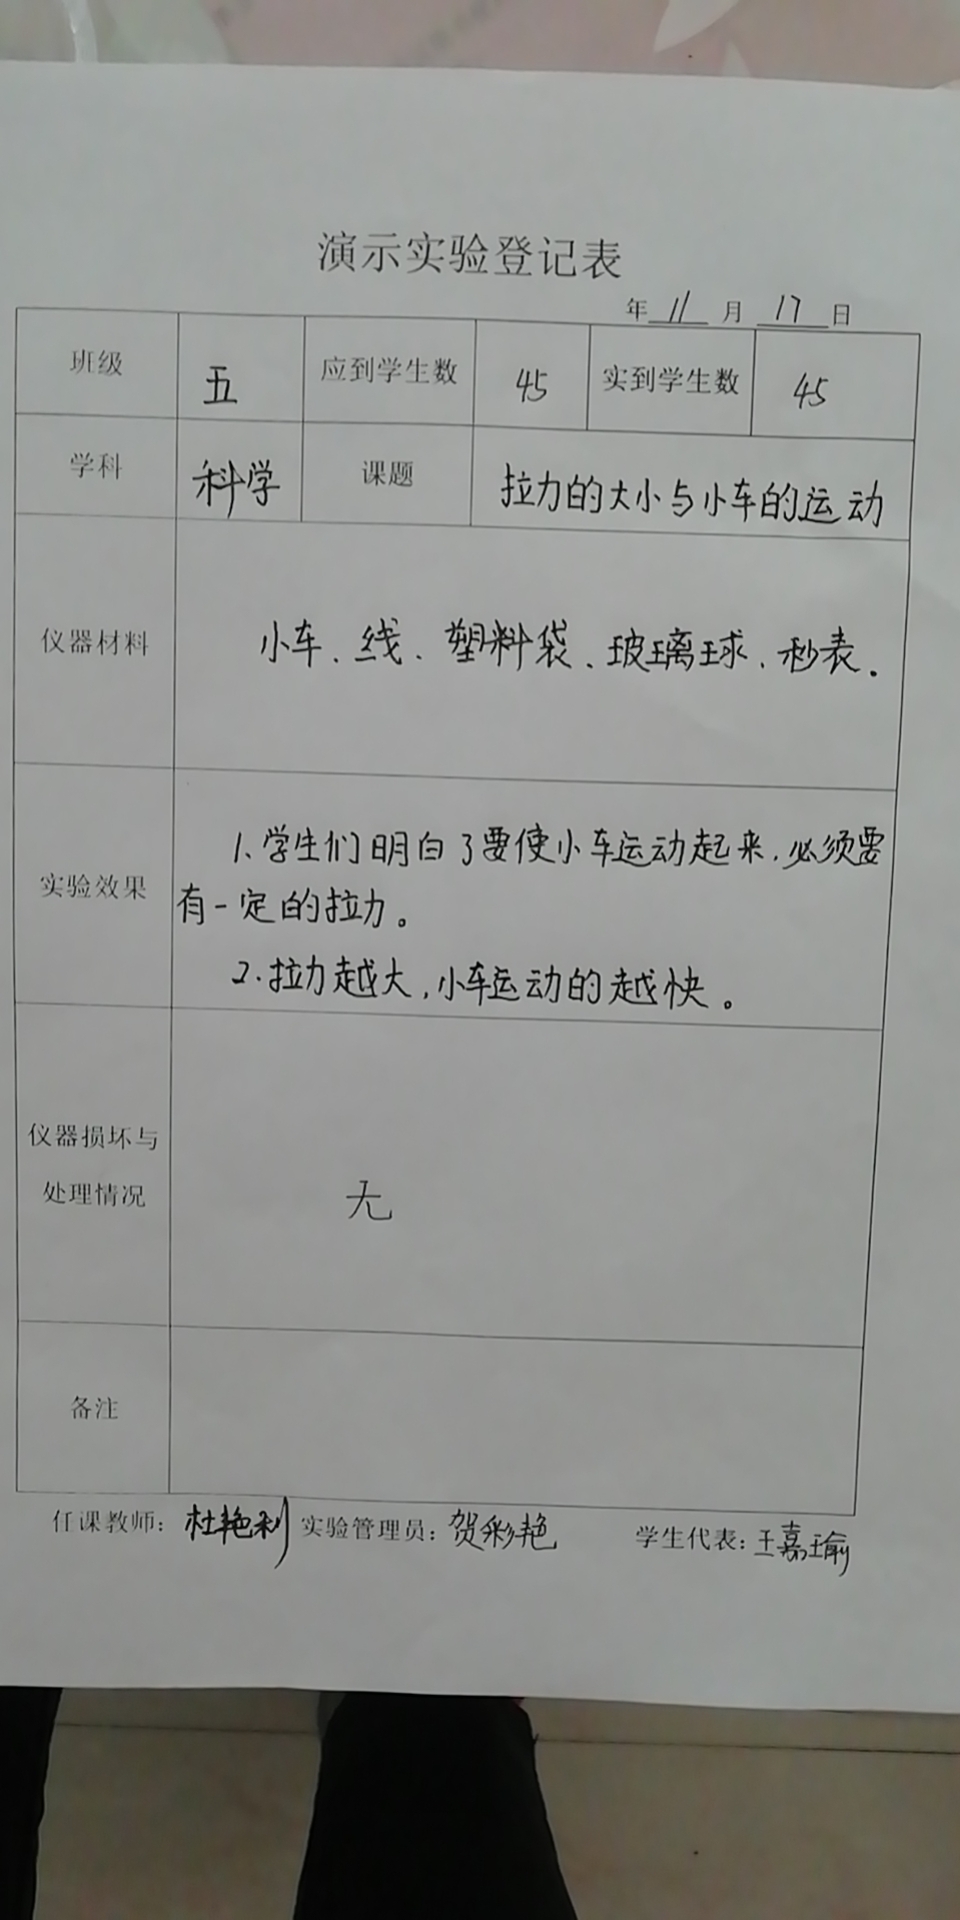 演示实验登记表
年 11 月 17 日
班级 五 应到学生数 45 实到学生数 45
学科 科学 课题 拉力的大小与小车的运动
仪器材料 小车、线、塑料袋、玻璃球、秒表.
实验效果
1.学生们明白了要使小车运动起来,必须要
有一定的拉力。
2.拉力越大,小车运动的越快。
仪器损坏与
处理情况
无
备注
任课教师:杜艳利 实验管理员:贺彩艳 学生代表:王嘉瑜